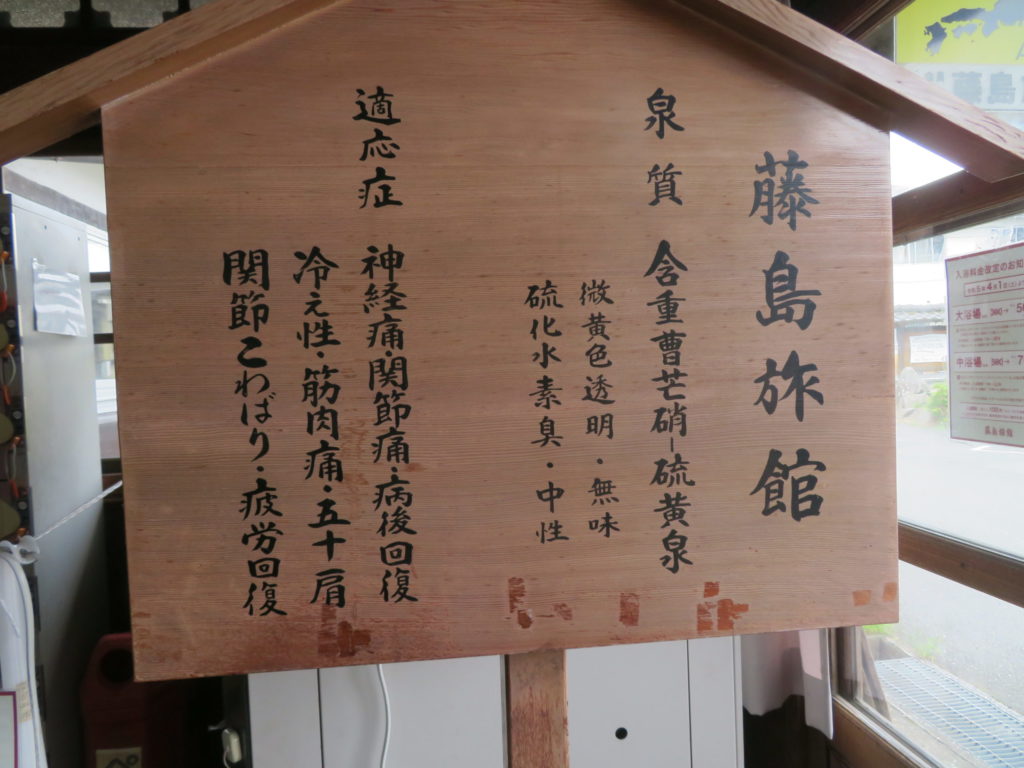 藤島旅館
泉質 含重曹芒硝-硫黄泉
微黄色透明・無味
硫化水素臭・中性
適応症 神経痛・関節痛・病後回復
冷え性・筋肉痛・五十肩
関節こわばり・疲労回復
藤島
入浴料金改定のお知
4月1日
大浴場
中浴場
藤島旅館